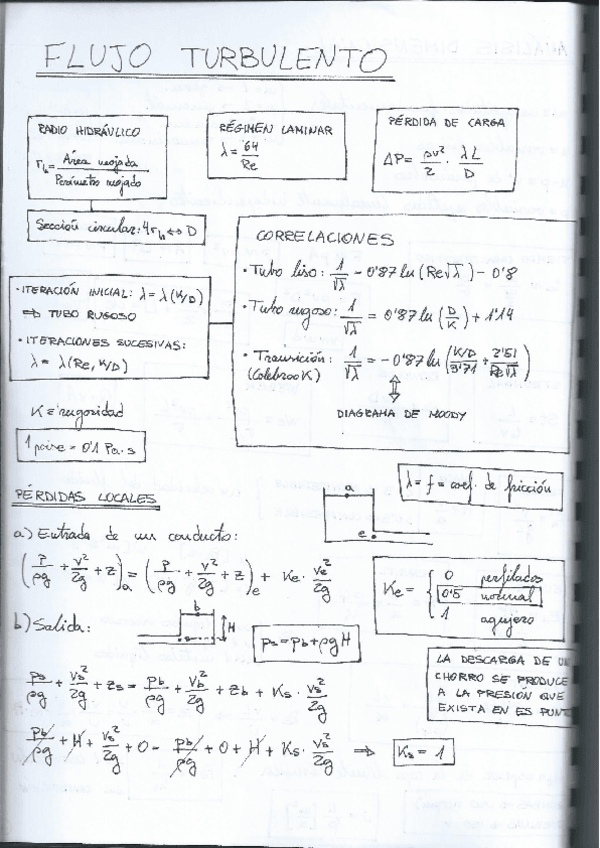 FLUJO TURBULENTO
RADIO HIDRÁULICO
r_h = Área mojada / Perímetro mojado
Sección circular: 4r_h ↔ D
RÉGIMEN LAMINAR
λ = 64 / Re
PÉRDIDA DE CARGA
ΔP = ρv²/2 · λL/D
CORRELACIONES
· Tubo liso: 1/√λ = 0'87 ln (Re√λ) - 0'8
· Tubo rugoso: 1/√λ = 0'87 ln (D/K) + 1'14
· Transición: 1/√λ = - 0'87 ln (K/D / 3'71 + 2'51 / Re√λ)
(Colebrook)
⇕
DIAGRAMA DE MOODY
· ITERACIÓN INICIAL: λ = λ(K/D)
⇒ TUBO RUGOSO
· ITERACIONES SUCESIVAS:
λ = λ(Re, K/D)
K ≡ rugosidad
1 poise = 0'1 Pa·s
λ = f = coef. de fricción
PÉRDIDAS LOCALES
a) Entrada de un conducto:
a
e
(P/ρg + v²/2g + z)_a = (P/ρg + v²/2g + z)_e + Ke · v_e²/2g
Ke = { 0 perfilados
0'5 normal
1 agujero
b) Salida:
b
H
p_s = p_b + ρgH
LA DESCARGA DE UN
CHORRO SE PRODUCE
A LA PRESIÓN QUE
EXISTA EN ES PUNT
p_s/ρg + v_s²/2g + z_s = p_b/ρg + v_b²/2g + z_b + K_s · v_s²/2g
p_b/ρg + H + v_s²/2g + 0 = p_b/ρg + 0 + H + K_s · v_s²/2g ⇒ K_s = 1